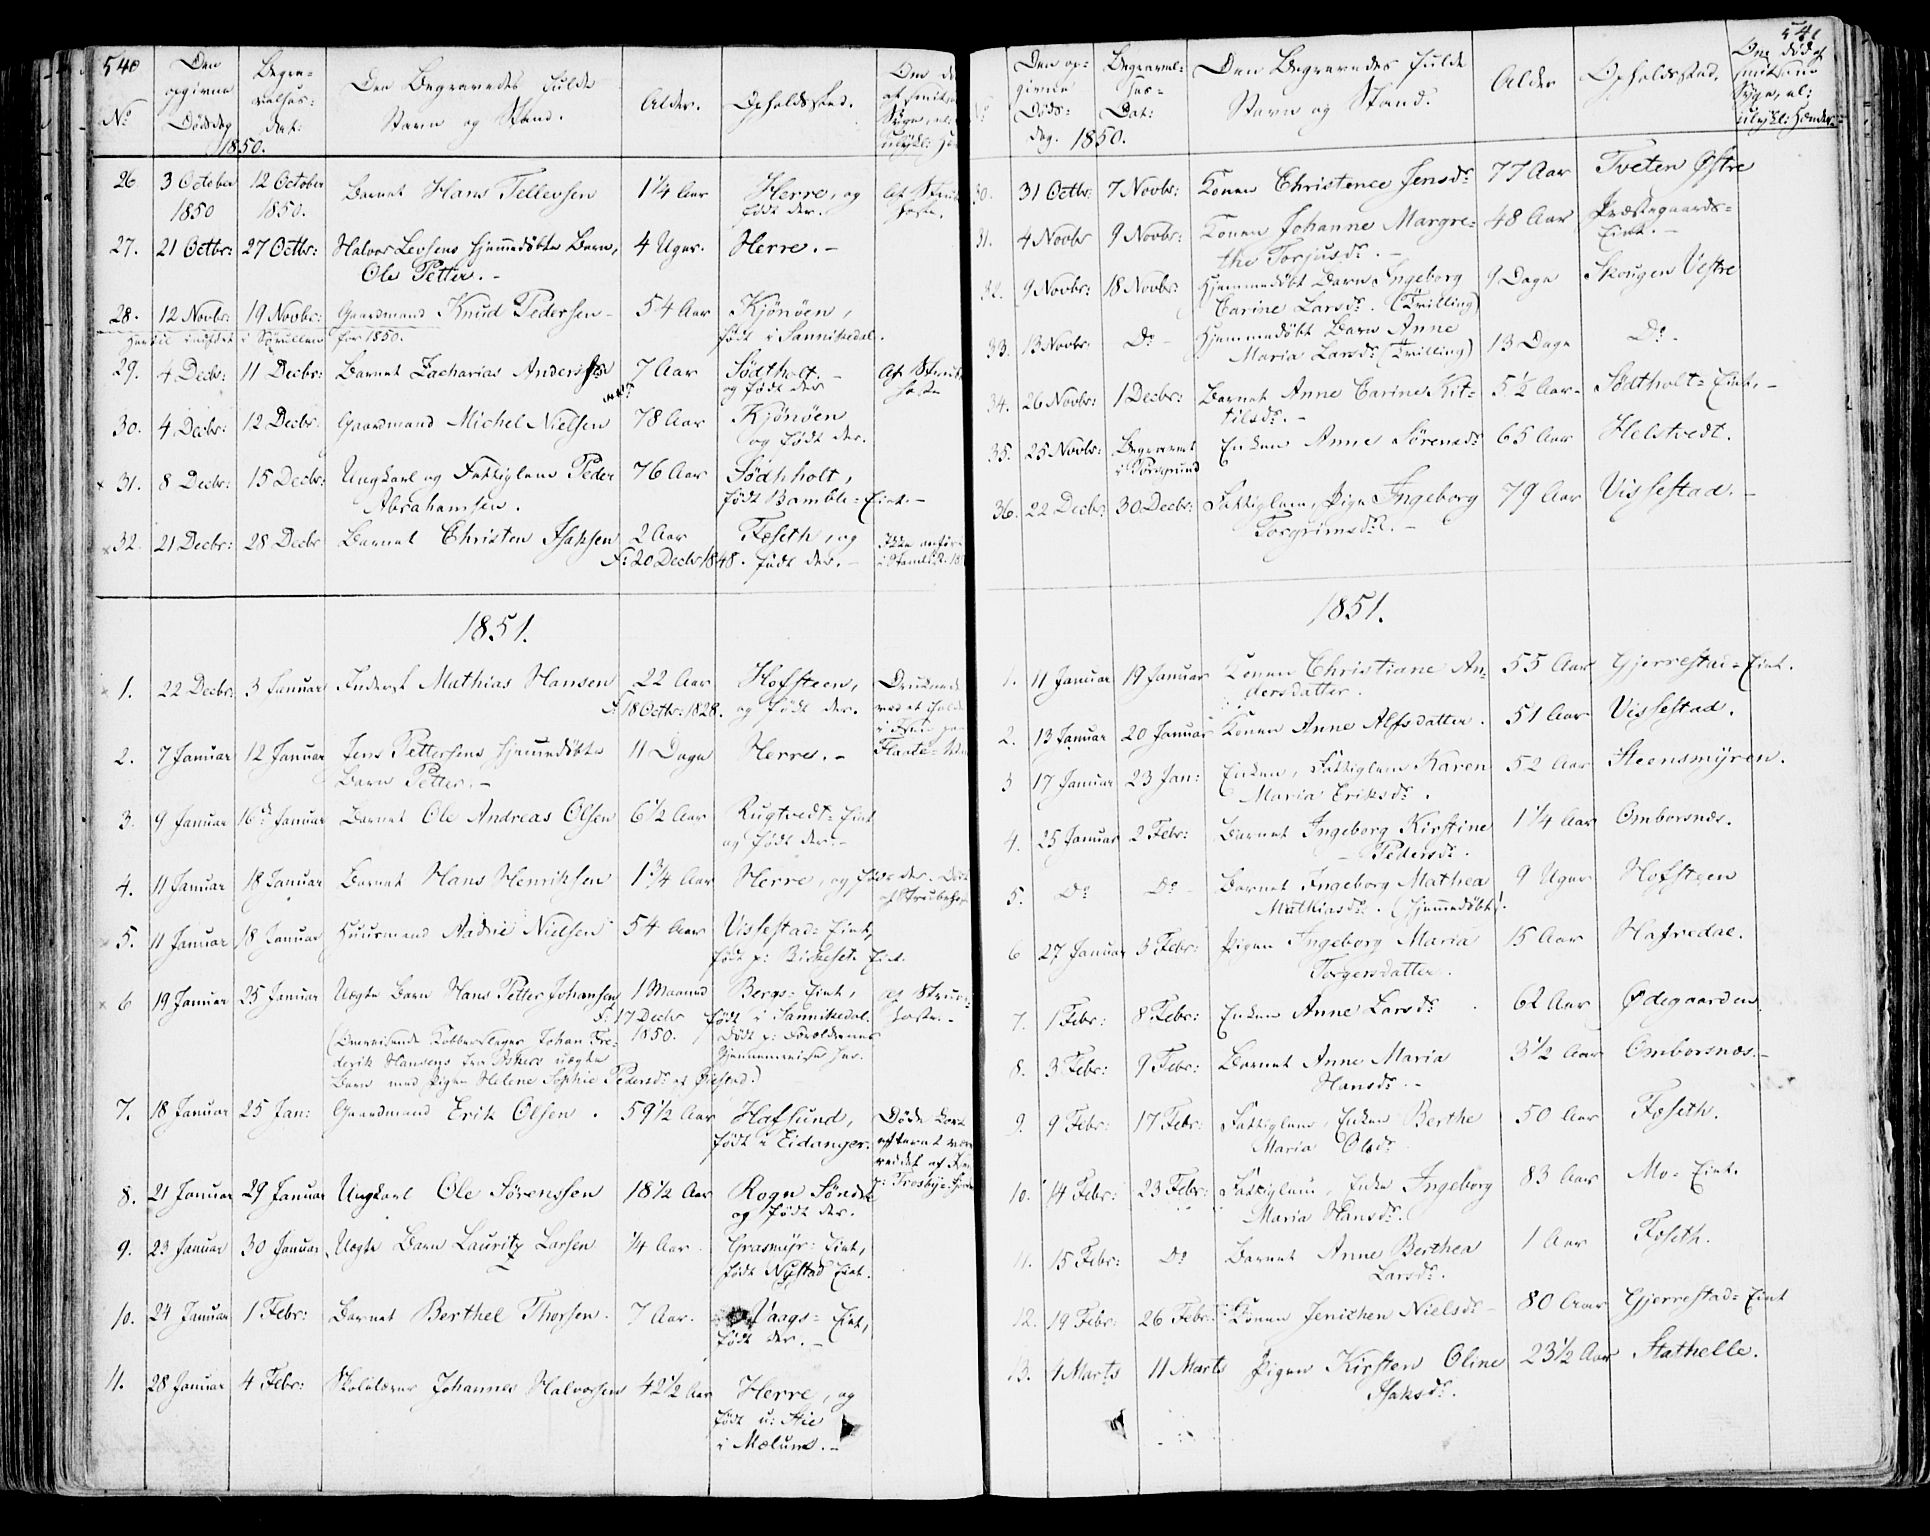 540
No
Den opgivne Dødsdag
Begravelses-Dat:
Den Begravedes fulde Navn og Stand.
Alder.
Opholdssted.
1850.
26. 3 October 1850 12 October 1850. Barnet Hans Tellevsen 1 1/4 Aar Herre, og født der.
27. 21 Octbr: 27 Octbr: Halvor Levsens hjemmedøbte Barn, Ole Petter. - 4 Uger. Herre. -
28. 12 Novbr: 19 Novbr: Gaardmand Knud Pedersen - 54 Aar Kjønøen, født i Sannikedal.
for 1850.
29. 4 Decbr: 11 Decbr: Barnet Zacharias Anders 7 Aar Sødtholt. - og født der
30. 4 Decbr: 12 Decbr. Gaardmand Michel Nielsen 78 Aar Kjønøen og født der.
x 31. 8 Decbr: 15 Decbr: Ungkarl og Fattiglem Peder Abrahamsen. 76 Aar Sødhholt, født Bamble-Eiet. -
x 32. 21 Decbr: 28 Decbr Barnet Christen Isaksen 2 Aar F: 20 Decbr 1848. Foseth, og født der. -
1851.
x 1. 22 Decbr. 3 Januar Inderst Mathias Hansen 22 Aar F. 18 Octbr: 1828. Hofsteen, og født der.
2. 7 Januar 12 Januar Jens Pettersens hjemmedøbte Barn Petter. - 11 Dage Herre. -
3. 9 Januar 16de Januar Barnet Ole Andreas Olsen 6 1/2 Aar Rugtvedt-Eiet og født der. -
4. 11 Januar 18 Januar Barnet Hans Henriksen 1 3/4 Aar Herre, og født der.
x 5. 11 Januar 18 Januar Huusmand Aadne Nielsen 54 Aar Vissestad-Eiet, født p:
x 6 19 Januar 25 Januar Uægte Barn Hans Petter Johansen 1 Maaned F. 17 Decbr 1850. Bergs-Eiet, født i Sannikedal.
Johan Frederik Hansens
Barn med Pigen Helene Sophie Pedersdr
7. 18 Januar 25 Jan: Gaardmand Erik Olsen. 59 1/2 Aar Hafsund, født i Eidanger.
8. 21 Januar 29 Januar Ungkarl Ole Sørenssen 18 1/2 Aar Rogn Søndre og født der.
9. 23 Januar 30 Januar Uægte Barn Lauritz Larsen 1/4 Aar. Grasmyr-Eiet, født Nystad Eiet.
10. 24 Januar 1 Febr: Barnet Berthel Thorsen. 7 Aar. Vaags-Eiet, født der. -
11. 28 Januar 4 Febr: Skolelærer Johannes Halvorsen 42 1/2 Aar Herre, og født u: Stie i Mælum. -
541
Den opgivne Døds-dag.
Begravelses-Dat:
Den Begravedes fulde Navn og Stand.
Alder
Opholdssted.
1850.
30. 31 Octbr: 7 Novbr: Konen Christence Jensdr 77 Aar Tveten Østre
31. 4 Novbr 9 Novbr: Konen Johanne Margrethe Torjusdr. - 48 Aar Præstegaards-Eiet. -
32. 9 Novbr: 18 Novbr: Hjemmedøbt Barn Ingeborg Carine Larsdr. (Tvilling) 9 Dage Skougen Vestre
33. 13 Novbr: Do - Hjemmedøbt Barn Anne Maria Larsdr (Tvilling) 13 Dage Do -
34. 26 Novbr: 1 Decbr: Barnet Anne Carine Kittilsdr. - 5 1/2 Aar - Sødtholt-Eiet, -
35. 25 Novbr: Begravet i Porsgrund Enken Anne Sørensdr 65 Aar Helstvedt.
36. 22 Decbr: 30 Decbr: Fattiglem, Pige Ingeborg Torgrimsdr. - 79 Aar Vissestad. -
1851.
1. 11 Januar 19 Januar Konen Christiane Andersdatter. 55 Aar Gjerrestad-Eiet.
2. 13 Januar 20 Januar Konen Anne Alfsdatter. 51 Aar Vissestad.
3 17 Januar 23 Jan: Enken, Fattiglem Karen Maria Eriksdr. 52 Aar Steensmyren.
4. 25 Januar 2 Febr: Barnet Ingeborg Kirstine Pedersdr. 1 1/4 Aar Omborsnæs.
5. Do Do - Barnet Ingeborg Mathea Mathiasdr. (hjemmedøbt). 9 Uger Hofsteen
6 27 Januar 3 Febr: Pigen Ingeborg Maria Torgersdatter. 15 Aar Hafredal.
7. 1 Febr: 8 Febr: Enken Anne Larsdr 62 Aar Ødegaarden
8. 3 Febr: 9 Febr: Barnet Anne Maria Hansdr. - 3 1/2 Aar Omborsnæs. -
9. 9 Febr: 17 Febr: Fattiglem, Enken Berthe Maria Olsdr. 50 Aar Foseth.
10. 14 Febr: 23 Febr: Fattiglem, Enke Ingeborg Maria Hansdr. 83 Aar Mo-Eiet.
11. 15 Febr: Do Barnet Anne Berthea Larsdr. 1 Aar Foseth.
12. 19 Febr: 26 Febr: Konen Jenichen Nielsdr - 80 Aar Gjerrestad-Eiet
13. 4 Marts 11 Marts Pigen Kirsten Oline Isaksdr. 23 1/2 Aar Stathelle.